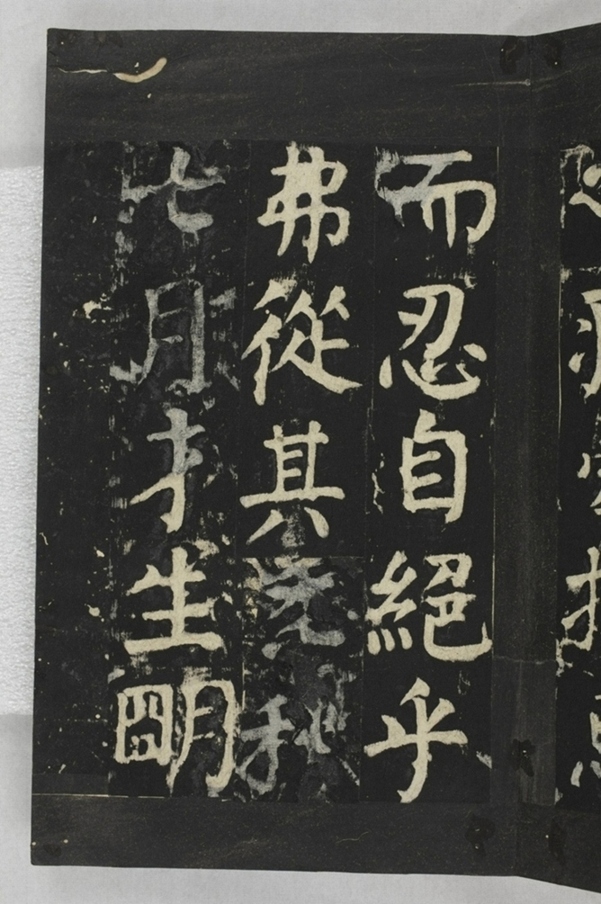 而忍自絕乎
弗從其秋
七月才生朙